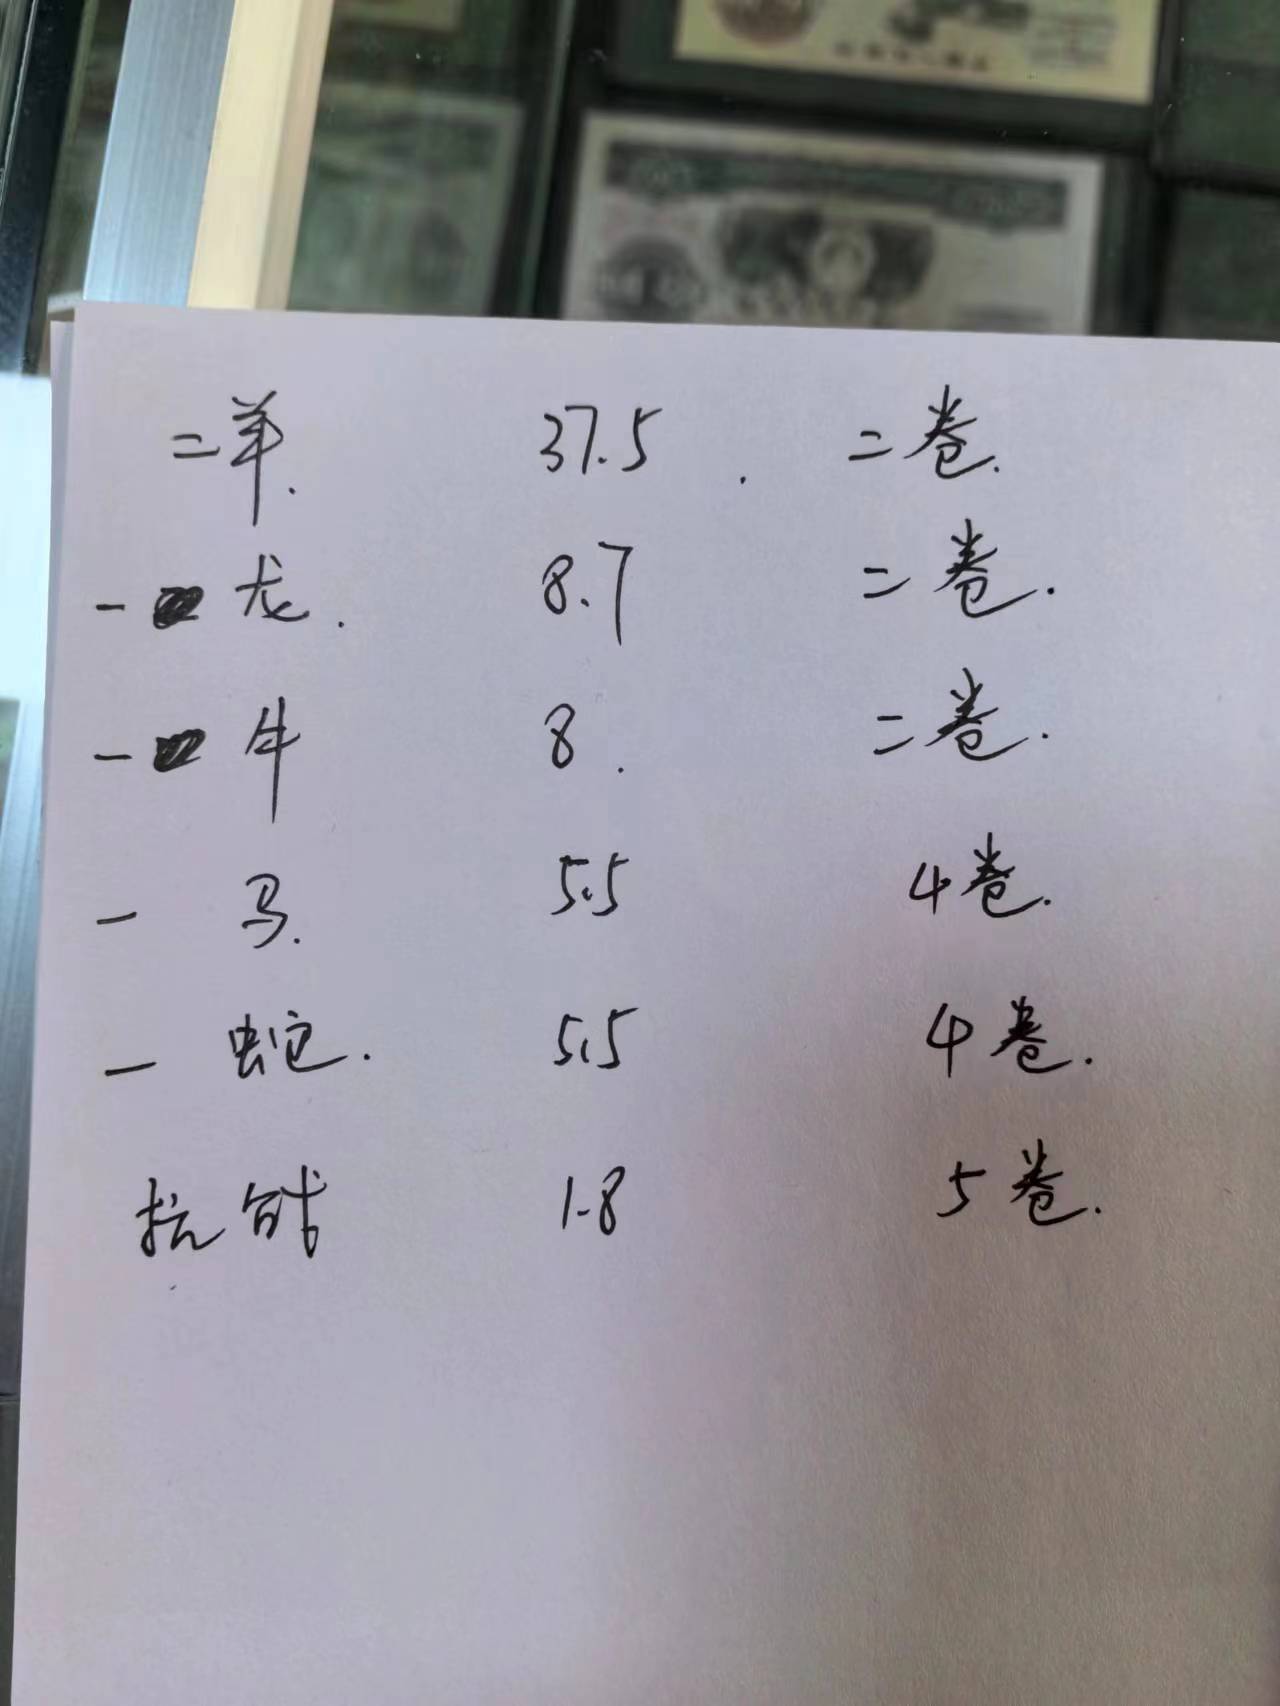 二羊. 37.5 . 二卷.
一 龙. 8.7 二卷.
一 牛 8. 二卷.
一 马. 5.5 4卷.
一 蛇. 5.5 4卷.
抗战 1.8 5卷.